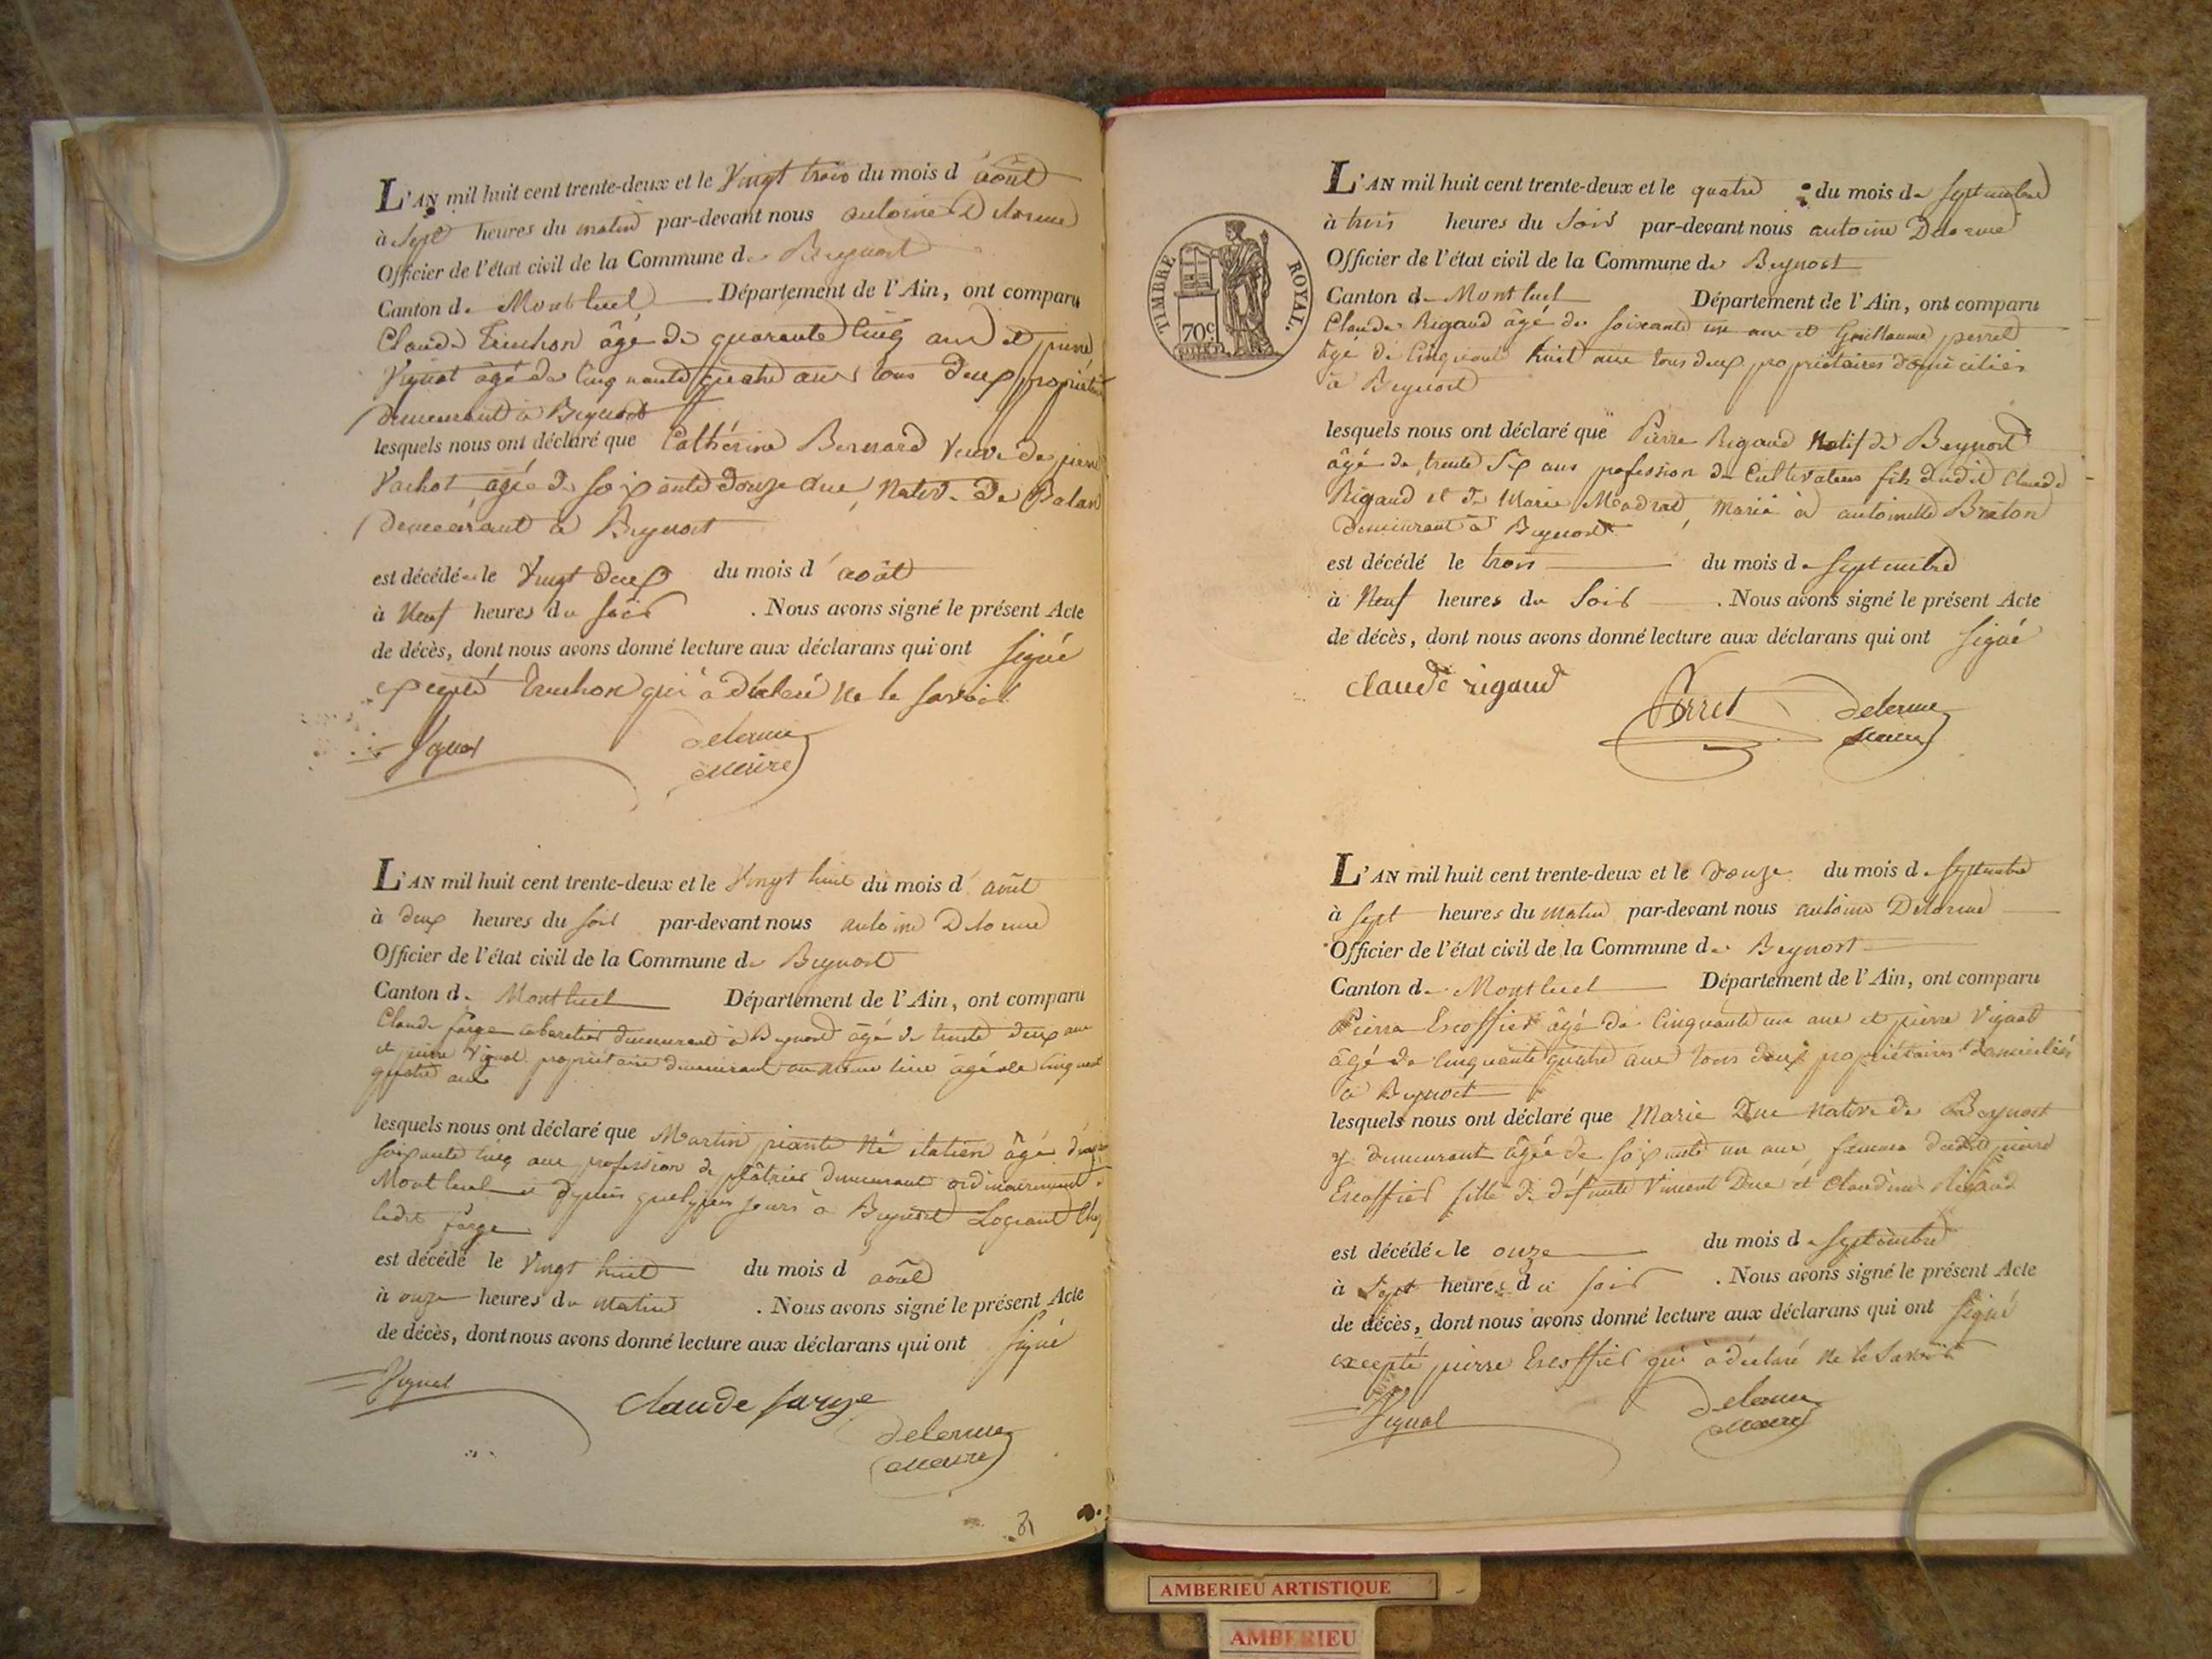 L'AN mil huit cent trente-deux et le Vingt trois du mois d'août
à Sept heures du matin par-devant nous antoine Delorme
Officier de l'état civil de la Commune de Beynost
Canton de Montluel Département de l'Ain, ont comparu
Claude Truchon âgé de quarante cinq ans et pierre
Vignat âgé de cinquante quatre ans tous deux propriétaires
demeurant à Beynost
lesquels nous ont déclaré que Cathérine Bernard Veuve de pierre
Vachot âgée de soixante douze ans, native de Balan
demeurant à Beynost
est décédée le Vingt deux du mois d'août
à Neuf heures du soir . Nous avons signé le présent Acte
de décès, dont nous avons donné lecture aux déclarans qui ont signé
excepté Truchon qui à déclaré ne le savoir
Vignat delorme
maire
L'AN mil huit cent trente-deux et le Vingt huit du mois d'août
à deux heures du soir par-devant nous antoine Delorme
Officier de l'état civil de la Commune de Beynost
Canton de Montluel Département de l'Ain, ont comparu
Claude farge cabaretier demeurant à Beynost âgé de trente deux ans
et pierre Vignat propriétaire demeurant au même lieu âgé de cinquante
quatre ans
lesquels nous ont déclaré que Martin piante né italien âgé
soixante cinq ans profession de plâtrier demeurant ordinairement à
Montluel et depuis quelques jours à Beynost Logeant chez
ledit farge
est décédé le Vingt huit du mois d'août
à onze heures du matin . Nous avons signé le présent Acte
de décès, dont nous avons donné lecture aux déclarans qui ont signé
Vignat claude farge
delorme
maire
31
TIMBRE ROYAL.
70c
L'AN mil huit cent trente-deux et le quatre du mois de septembre
à trois heures du Soir par-devant nous antoine Delorme
Officier de l'état civil de la Commune de Beynost
Canton de Montluel Département de l'Ain, ont comparu
Claude Rigaud âgé de soixante un ans et Guillaume perret
âgé de cinquante huit ans tous deux propriétaires domiciliés
à Beynost
lesquels nous ont déclaré que Pierre Rigaud Natif de Beynost
âgé de trente six ans profession de Cultivateur fils dudit Claude
Rigaud et de Marie Modrat, marié à antoinette Braton
demeurant à Beynost
est décédé le trois du mois de septembre
à Neuf heures du Soir . Nous avons signé le présent Acte
de décès, dont nous avons donné lecture aux déclarans qui ont signé
claude rigaud Perret delorme
maire
L'AN mil huit cent trente-deux et le douze du mois de septembre
à sept heures du matin par-devant nous antoine Delorme
Officier de l'état civil de la Commune de Beynost
Canton de Montluel Département de l'Ain, ont comparu
Pierre Escoffier âgé de cinquante un ans et pierre Vignat
âgé de cinquante quatre ans tous deux propriétaires domiciliés
à Beynost
lesquels nous ont déclaré que Marie Duc native de Beynost
y demeurant âgée de soixante un ans, femme dudit pierre
Escoffier fille de défunts Vincent Duc et Claudine Rigaud
est décédée le onze du mois de septembre
à Sept heures du soir . Nous avons signé le présent Acte
de décès, dont nous avons donné lecture aux déclarans qui ont signé
excepté pierre Escoffier qui à déclaré ne le Savoir
Vignat delorme
maire
AMBERIEU ARTISTIQUE
AMBERIEU